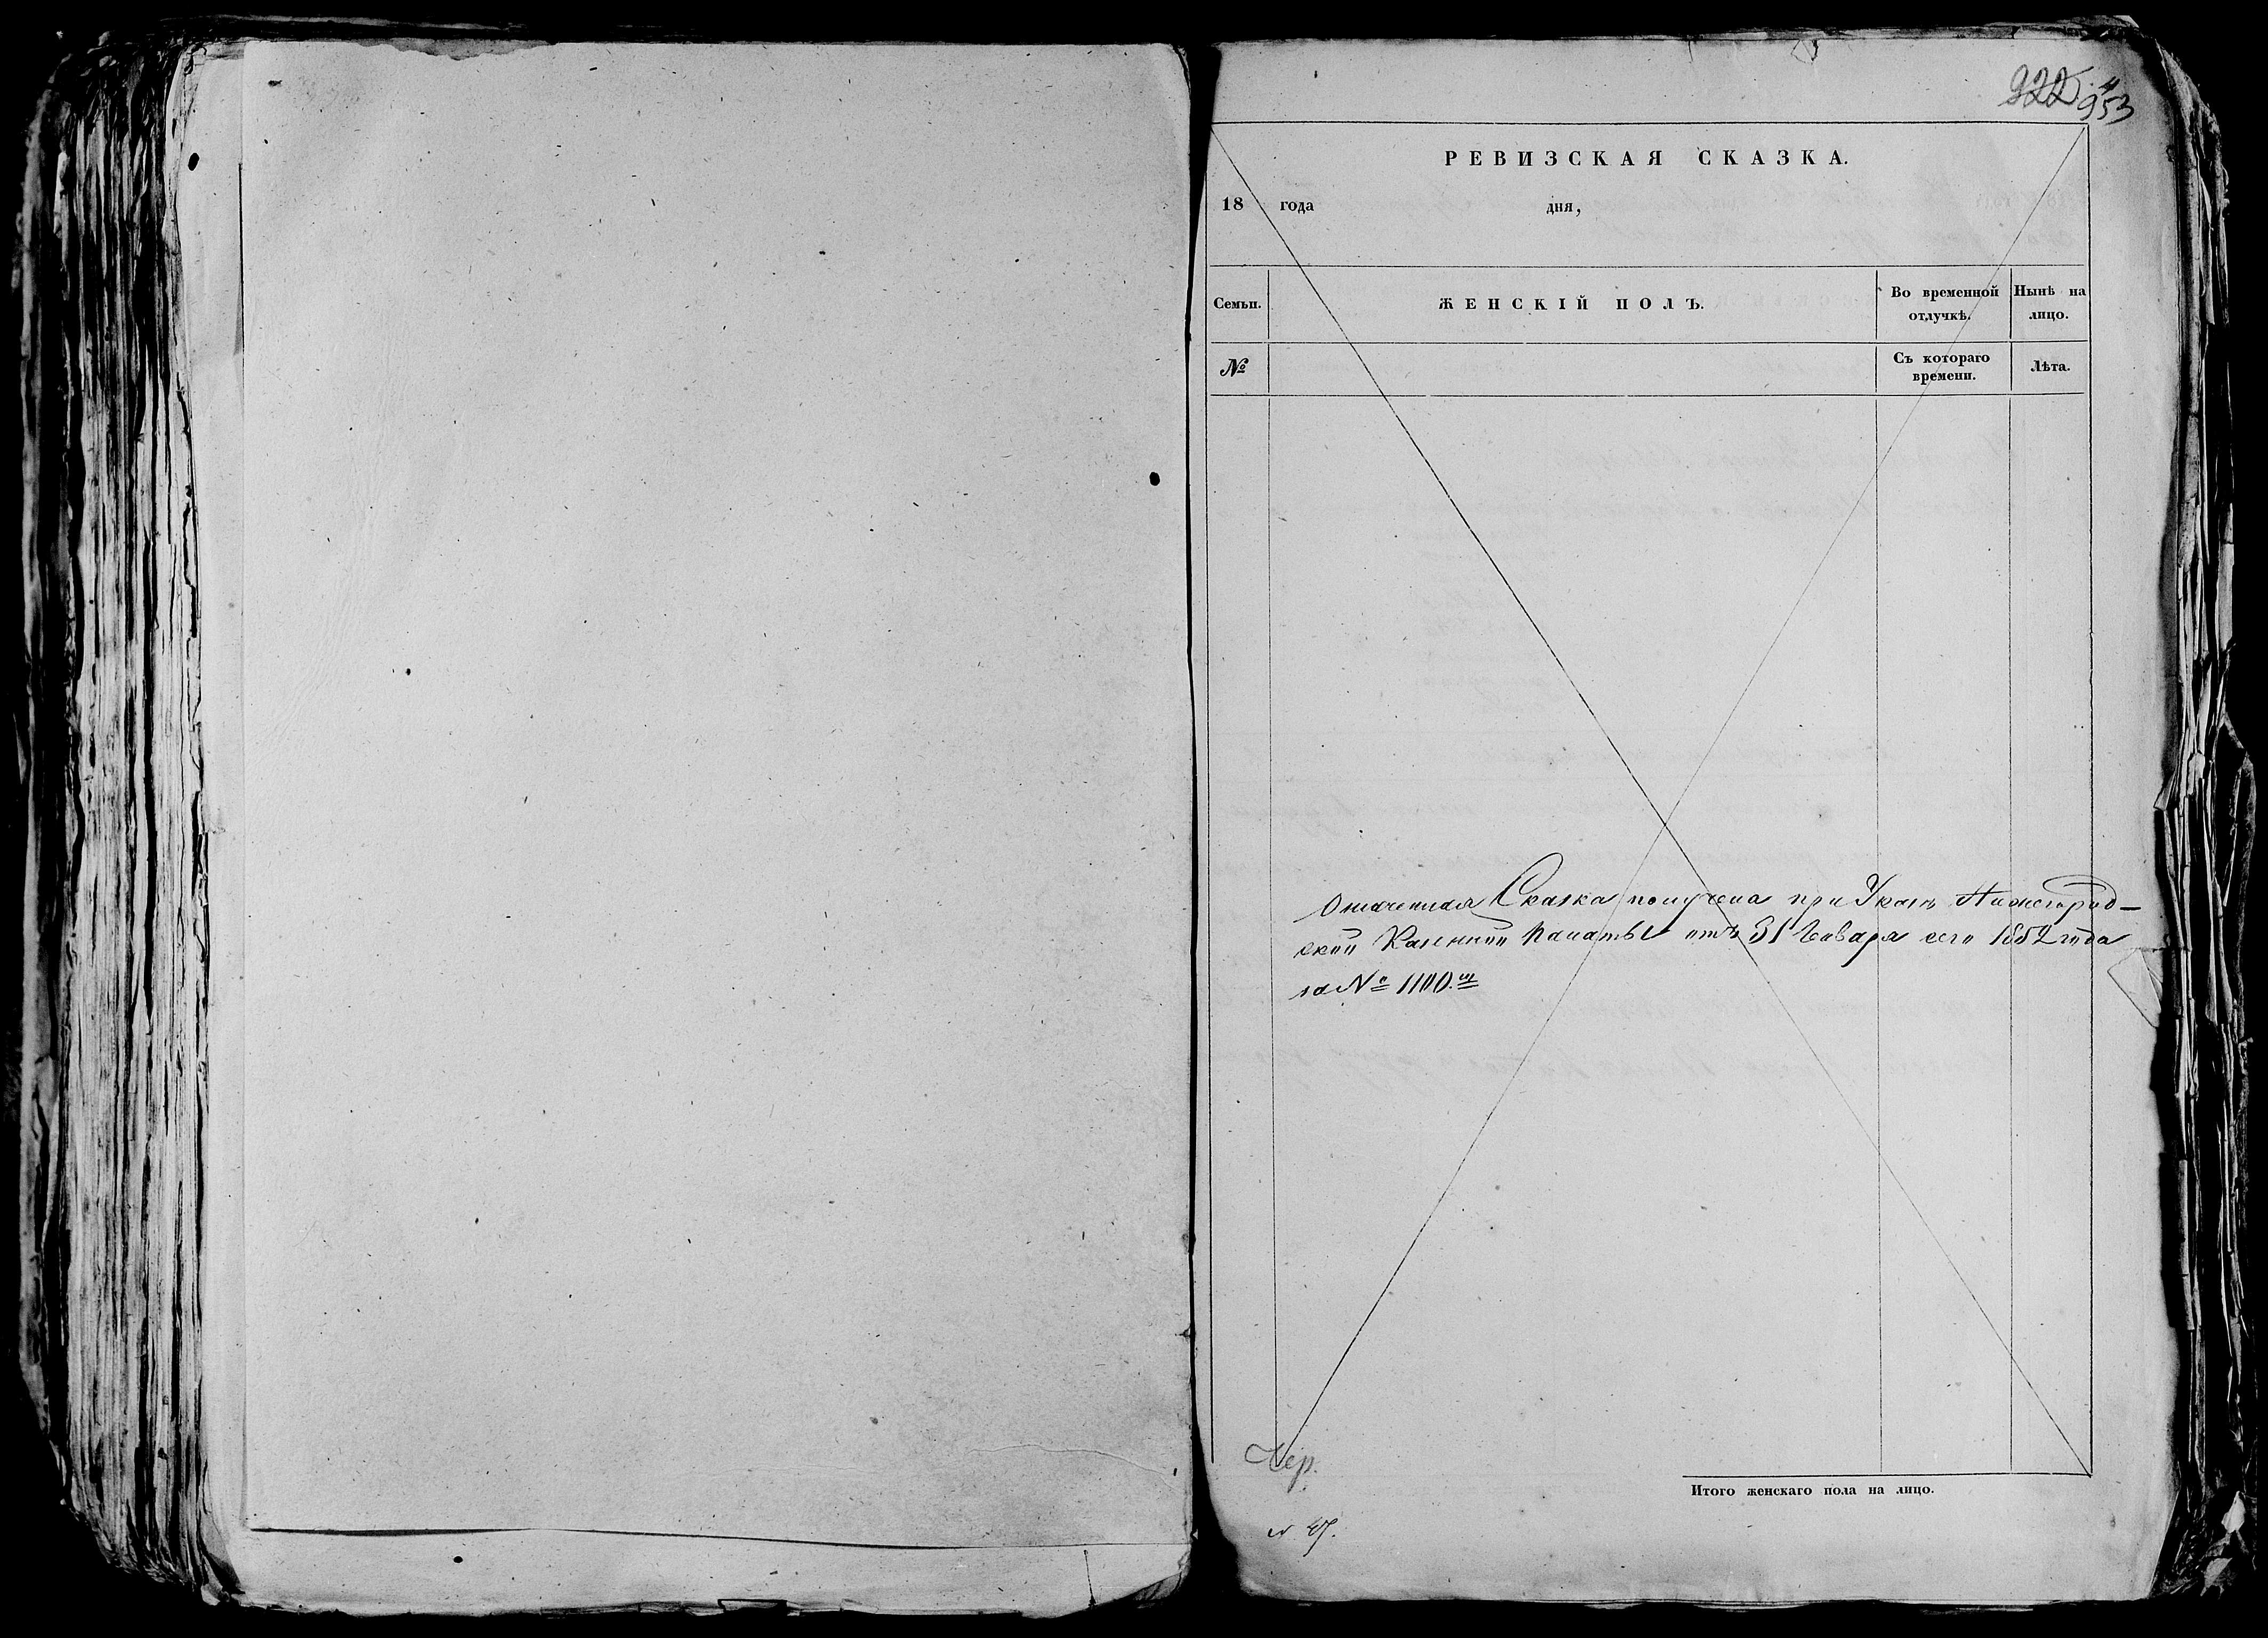 922 953
РЕВИЗСКАЯ СКАЗКА.
18 года дня,
Семьи. ЖЕНСКІЙ ПОЛЪ. Во временной отлучкѣ. Нынѣ на лицо.
№ Съ котораго времени. Лѣта.
Означенная Сказка получена при Указѣ Нижегород-
ской Казенной Палаты отъ 31 Генваря сего 1852 года
за № 1100.м
Итого женскаго пола на лицо.